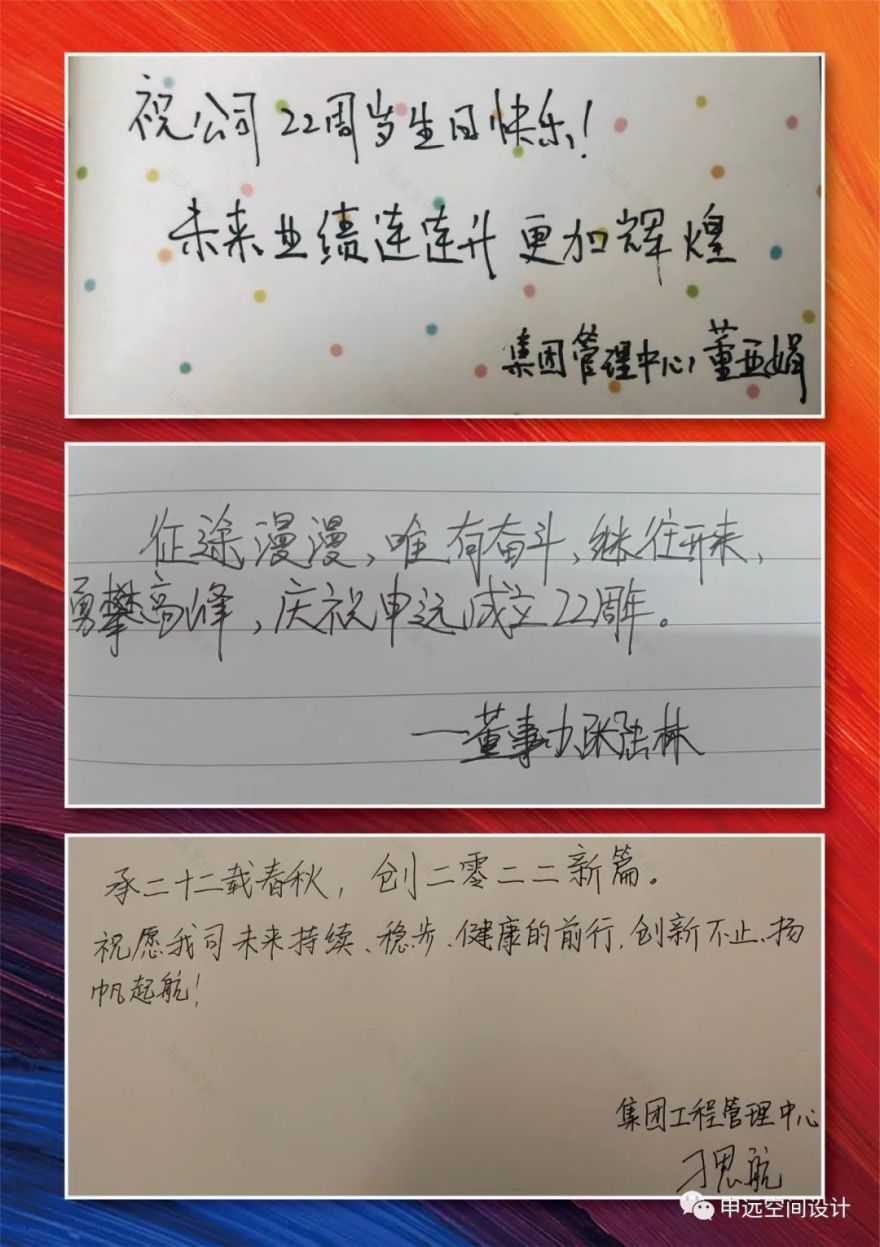 祝公司22周岁生日快乐!
未来业绩连连升 更加辉煌
集团管理中心,董亚娟
征途漫漫,唯有奋斗,继往开来,
勇攀高峰,庆祝申远成立22周年。
—董事办
承二十二载春秋,创二零二二新篇。
祝愿我司未来持续、稳步、健康的前行,创新不止、扬
帆起航!
集团工程管理中心
刁思航
申远空间设计